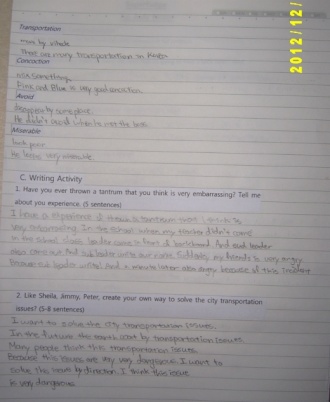 2012/12/
Transportation
move by vehicle
There are many transportation in Korea
Concoction
mix something
Pink and Blue is very good concoction.
Avoid
disappear by some place.
He didn't avoid when he met the
Miserable
look poor
He looks very miserable.
C. Writing Activity
1. Have you ever thrown a tantrum that you think is very embarrassing? Tell me
about you experience. (5 sentences)
I have a experience of tantrum
very embarrassing. In the school when my teacher didn't come
in the school class leader come in front of And sub leader
also come out. And sub leader write our name. Suddenly, my friends is very angry
because sub leader write. And a minute later also angry because of this
2. Like Sheila, Jimmy, Peter, create your own way to solve the city transportation
issues? (5-8 sentences)
I want to solve the city transportation issues.
In the future the earth by transportation issues
Many people think this transportation issues.
Because this issues are very very dangerous. I want to
solve this by direction. I think this issue
is very dangerous